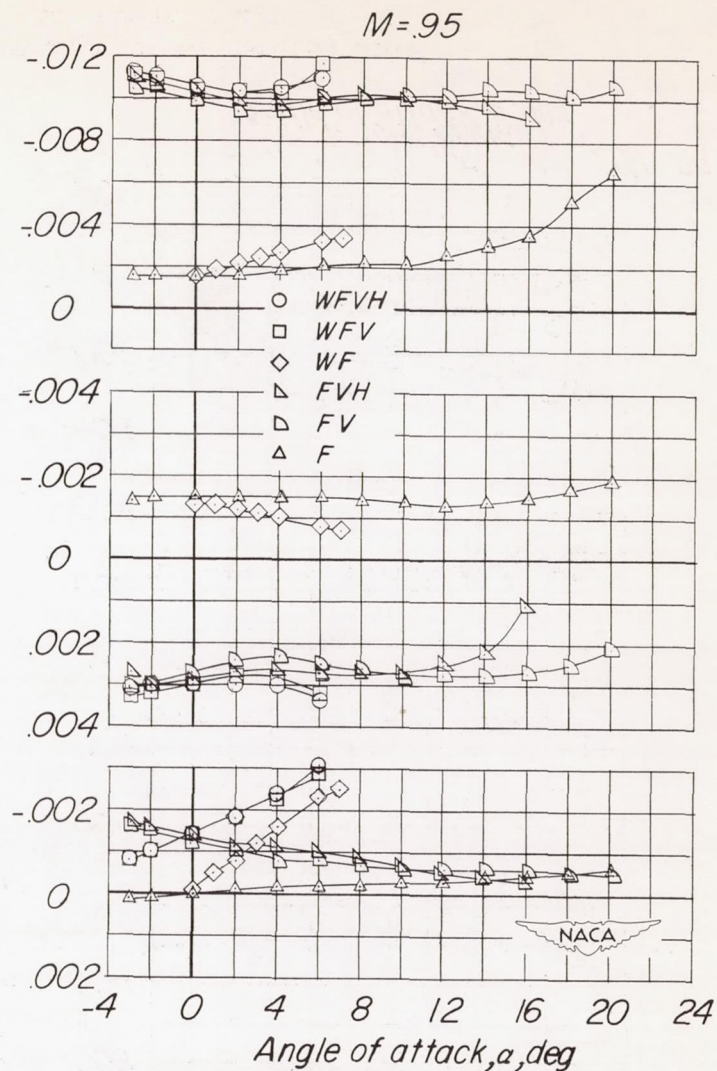 M=.95
-.012
-.008
-.004
0
WFVH
WFV
WF
FVH
FV
F
-.004
-.002
0
.002
.004
-.002
0
.002
NACA
-4 0 4 8 12 16 20 24
Angle of attack, α, deg